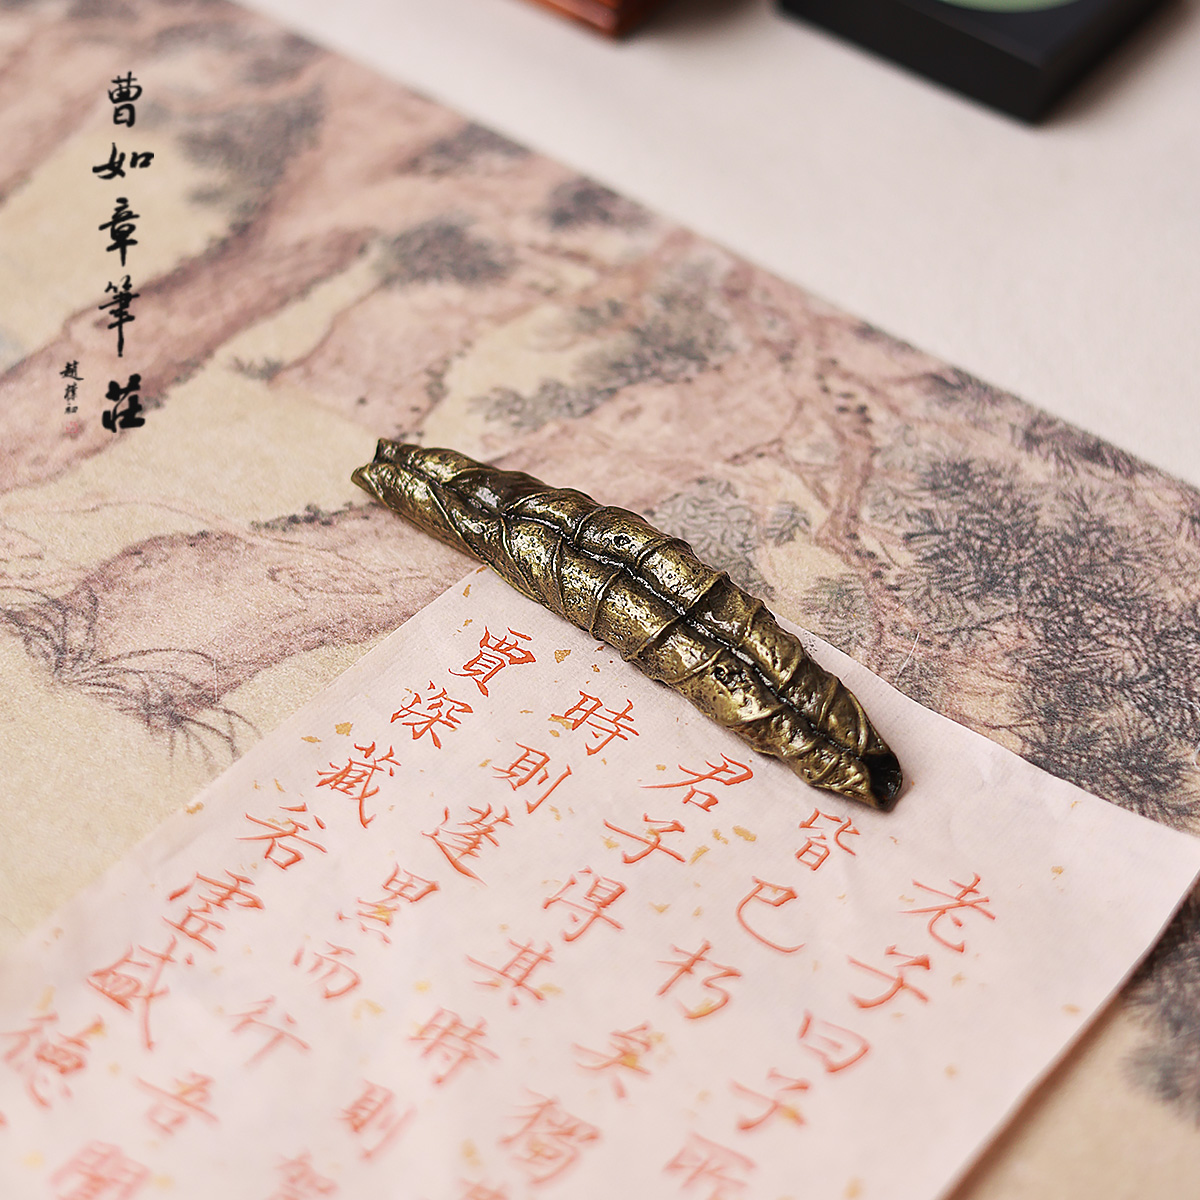 曹如章筆莊
趙樸初
老子曰子所
皆已朽矣獨
君子得其時則駕
時則蓬累而行吾聞
賈深藏若虛盛德